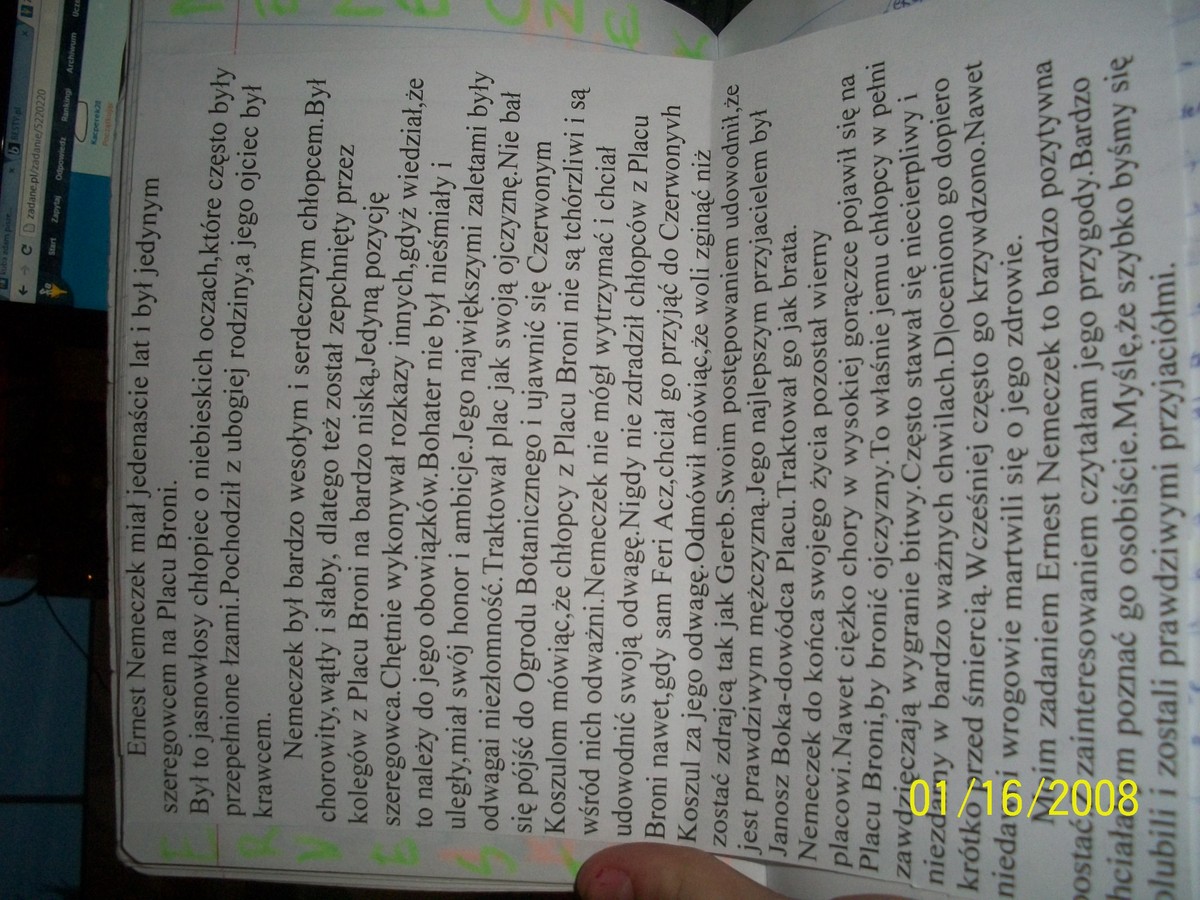 Ernest Nemeczek miał jedenaście lat i był jedynym
szeregowcem na Placu Broni.
Był to jasnowłosy chłopiec o niebieskich oczach,które często były
przepełnione łzami.Pochodził z ubogiej rodziny,a jego ojciec był
krawcem.
Nemeczek był bardzo wesołym i serdecznym chłopcem.Był
chorowity,wątły i słaby, dlatego też został zepchnięty przez
kolegów z Placu Broni na bardzo niską,Jedyną pozycję
szeregowca.Chętnie wykonywał rozkazy innych,gdyż wiedział,że
to należy do jego obowiązków.Bohater nie był nieśmiały i
uległy,miał swój honor i ambicje.Jego największymi zaletami były
odwagai niezłomność.Traktował plac jak swoją ojczyznę.Nie bał
się pójść do Ogrodu Botanicznego i ujawnić się Czerwonym
Koszulom mówiąc,że chłopcy z Placu Broni nie są tchórzliwi i są
wśród nich odważni.Nemeczek nie mógł wytrzymać i chciał
udowodnić swoją odwagę.Nigdy nie zdradził chłopców z Placu
Broni nawet,gdy sam Feri Acz,chciał go przyjąć do Czerwonyvh
Koszul za jego odwagę.Odmówił mówiąc,że woli zginąć niż
zostać zdrajcą tak jak Gereb.Swoim postępowaniem udowodnił,że
jest prawdziwym mężczyzną.Jego najlepszym przyjacielem był
Janosz Boka-dowódca Placu.Traktował go jak brata.
Nemeczek do końca swojego życia pozostał wierny
placowi.Nawet ciężko chory w wysokiej gorączce pojawił się na
Placu Broni,by bronić ojczyzny.To właśnie jemu chłopcy w pełni
zawdzięczają wygranie bitwy.Często stawał się niecierpliwy i
niezdarny w bardzo ważnych chwilach.D|oceniono go dopiero
krótko przed śmiercią.Wcześniej często go krzywdzono.Nawet
niedawni wrogowie martwili się o jego zdrowie.
Moim zadaniem Ernest Nemeczek to bardzo pozytywna
postać.Z zainteresowaniem czytałam jego przygody.Bardzo
hciałabym poznać go osobiście.Myślę,że szybko byśmy się
olubili i zostali prawdziwymi przyjaciółmi.
01/16/2008
zadane.pl/zadanie/5220220
Start Zapytaj Odpowiedz Rankingi Archiwum
Kacperek28